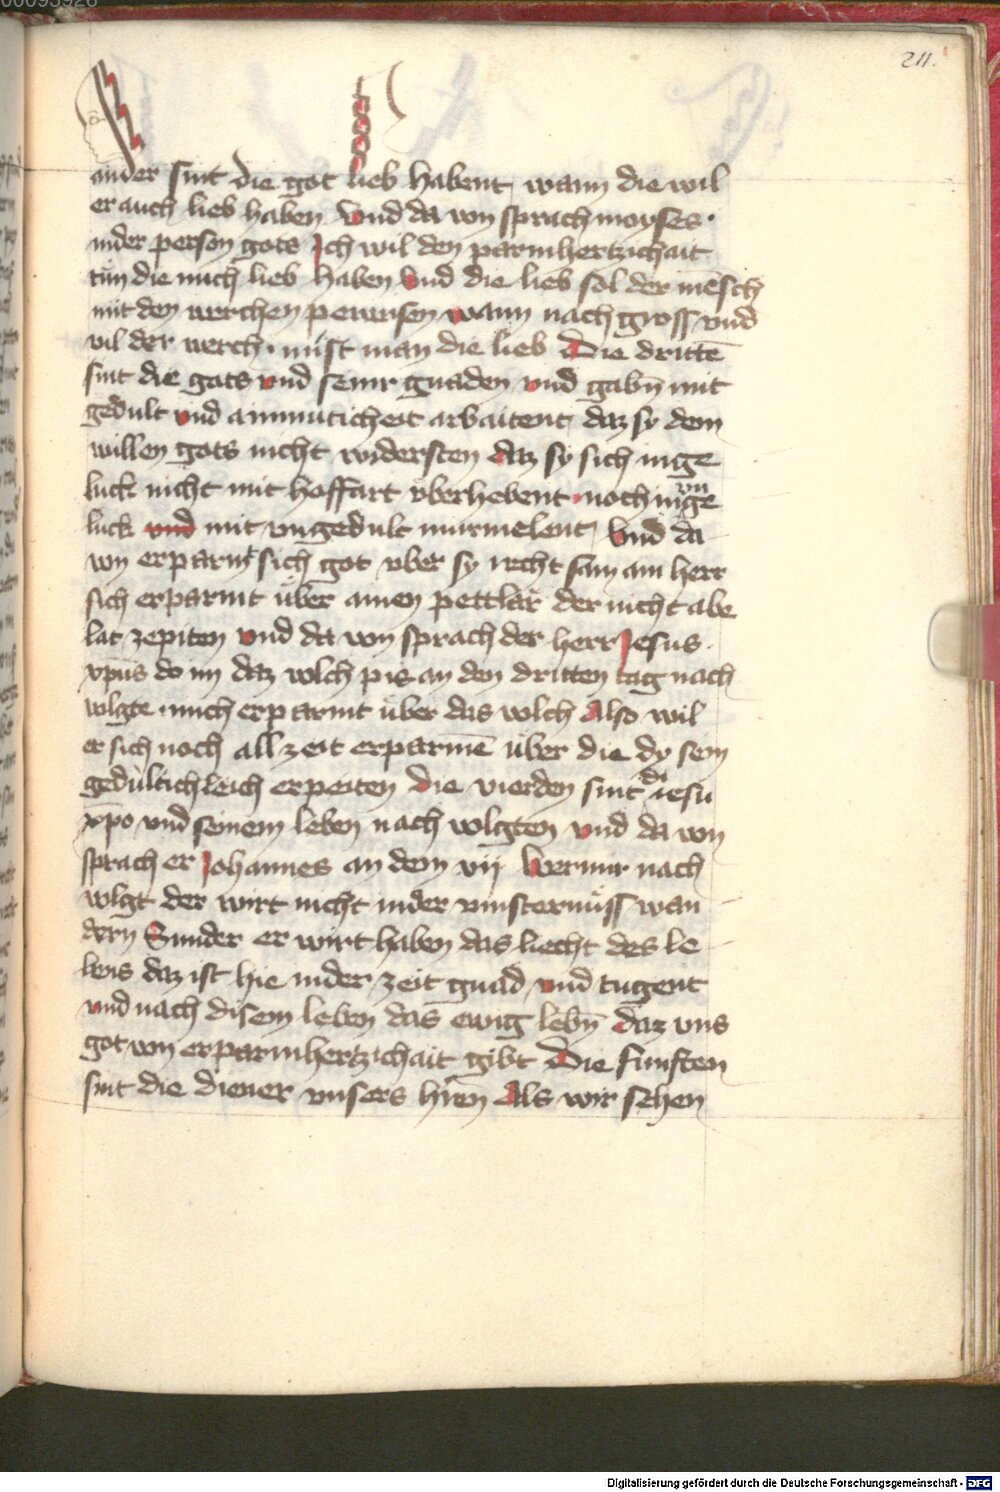 00093926
211.
ander sint die got lieb habent wann die wil
er auch lieb haben Vnd da von sprach moyses.
inder person gots Ich wil den parmhertzichait
tůn die mich lieb haben Vnd die lieb sol der mēsch
mit den werchen peweisen wann nach gross vnd
vil der werch. mist man die lieb Die drittē
sint die gots vnd seinr gnaden vnd gabn̄ mit
gedult vnd ainmuticheit arbaitent daz sy dem
willen gots nicht widersten daz sy sich inge
luck nicht mit hoffart vberhebent noch in vnge
luck vnd mit vngedult murmelent Vnd da
von erparmt sich got vber sy recht sam ain herr
sich erparmt über ainen pettlär der nicht abe
lat zepiten vnd da von sprach der herr Jesus.
xp̄us do im daz volch pis an den dritten tag nach
volgte. mich erparmt über das volch Also wil
er sich noch allzeit erparmē über die dy sein
gedültichleich erpeiten die vierden sint di iesu
xp̄o vnd seinem leben nach volgten vnd da von
sprach er Johannes an dem vij Wer mir nach
volgt der wirt nicht inder vinsternüss wan
dern Sunder er wirt haben das liecht des le
bens daz ist hie inder zeit gnad vnd tugent
vnd nach disem leben das ewig lebn̄ daz vns
got von erparmhertzichait gibt Die funften
sint die diener vnsers hren̄ Als wir sehen
Digitalisierung gefördert durch die Deutsche Forschungsgemeinschaft - DFG